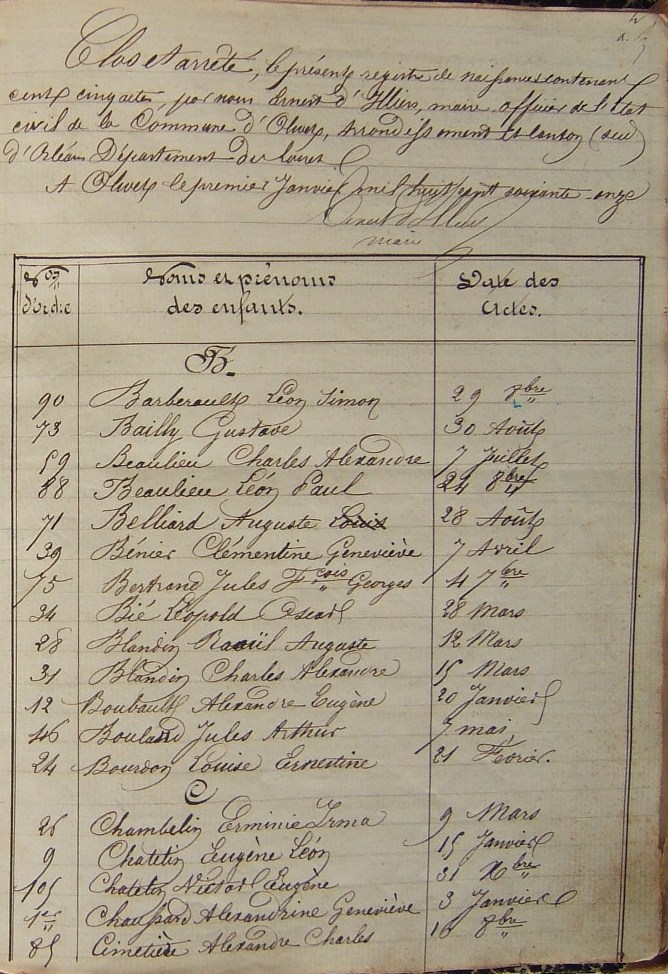 Clos et arrêté, le présent registre de naissances contenant
cent cinq actes, par nous Ernest d'Illiers, maire officier de l'état
civil de la Commune d'Olivet, arrondissement et canton (sud)
d'Orléans Département du Loiret
A Olivet le premier Janvier mil huit cent soixante-onze
Ernest d'Illiers
maire
Nos d'Ordre Noms et prénoms des enfants. Date des Actes.
B.
90 Barberault Léon Simon 29 8bre "
73 Bailly Gustave 30 Août
59 Beaulieu Charles Alexandre 7 Juillet
88 Beaulieu Léon Paul 24 8bre "
71 Belliard Auguste Louis 28 Août
39 Bénier Clémentine Geneviève 7 Avril
75 Bertrand Jules Fçois " Georges 4 7bre "
34 Bié Léopold Oscar 28 Mars
28 Blandin Raoül Auguste 12 Mars
31 Blandin Charles Alexandre 15 Mars
12 Boubault Alexandre Eugène 20 Janvier
46 Bouland Jules Arthur 7 mai
24 Bourdon Louise Ernestine 21 Fevrier.
C
26 Chambelin Erminie Irma 9 Mars
9 Chatelin Eugène Léon 15 Janvier
105 Chatelin Victor Eugène 31 Xbre "
1er " Chaussard Alexandrine Geneviève 3 Janvier
85 Cimetière Alexandre Charles 16 8bre "